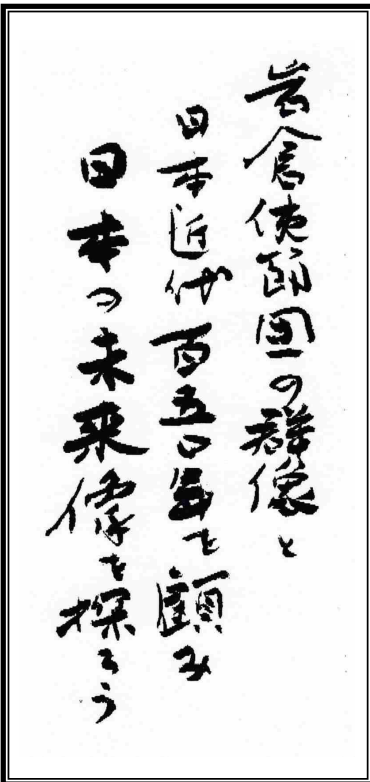 岩倉使節団の群像と
日本近代百五〇年を顧み
日本の未来像を探ろう